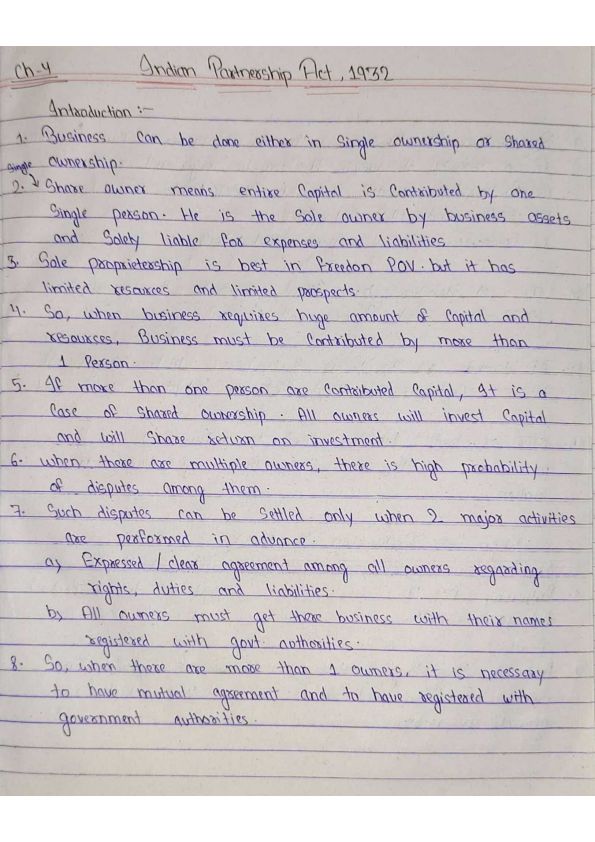 Ch-4 Indian Partnership Act, 1932
Introduction :-
1. Business can be done either in Single ownership or Shared
ownership.
2. Single Share owner means entire Capital is Contributed by one
Single person. He is the Sole owner by business assets
and Solely liable for expenses and liabilities
3. Sole proprietership is best in freedon POV. but it has
limited resources and limited prospects.
4. So, when business requires huge amount of Capital and
resources, Business must be Contributed by more than
1 Person.
5. If more than one person are Contributed Capital, It is a
Case of Shared ownership. All owners will invest Capital
and will Share return on investment.
6. when there are multiple owners, there is high probability
of disputes among them.
7. Such disputes can be Settled only when 2 major activities
are performed in advance.
a) Expressed / clear agreement among all owners regarding
rights, duties and liabilities.
b) All owners must get there business with their names
registered with govt. authorities.
8. So, when there are more than 1 owners, it is necessary
to have mutual agreement and to have registered with
government authorities.